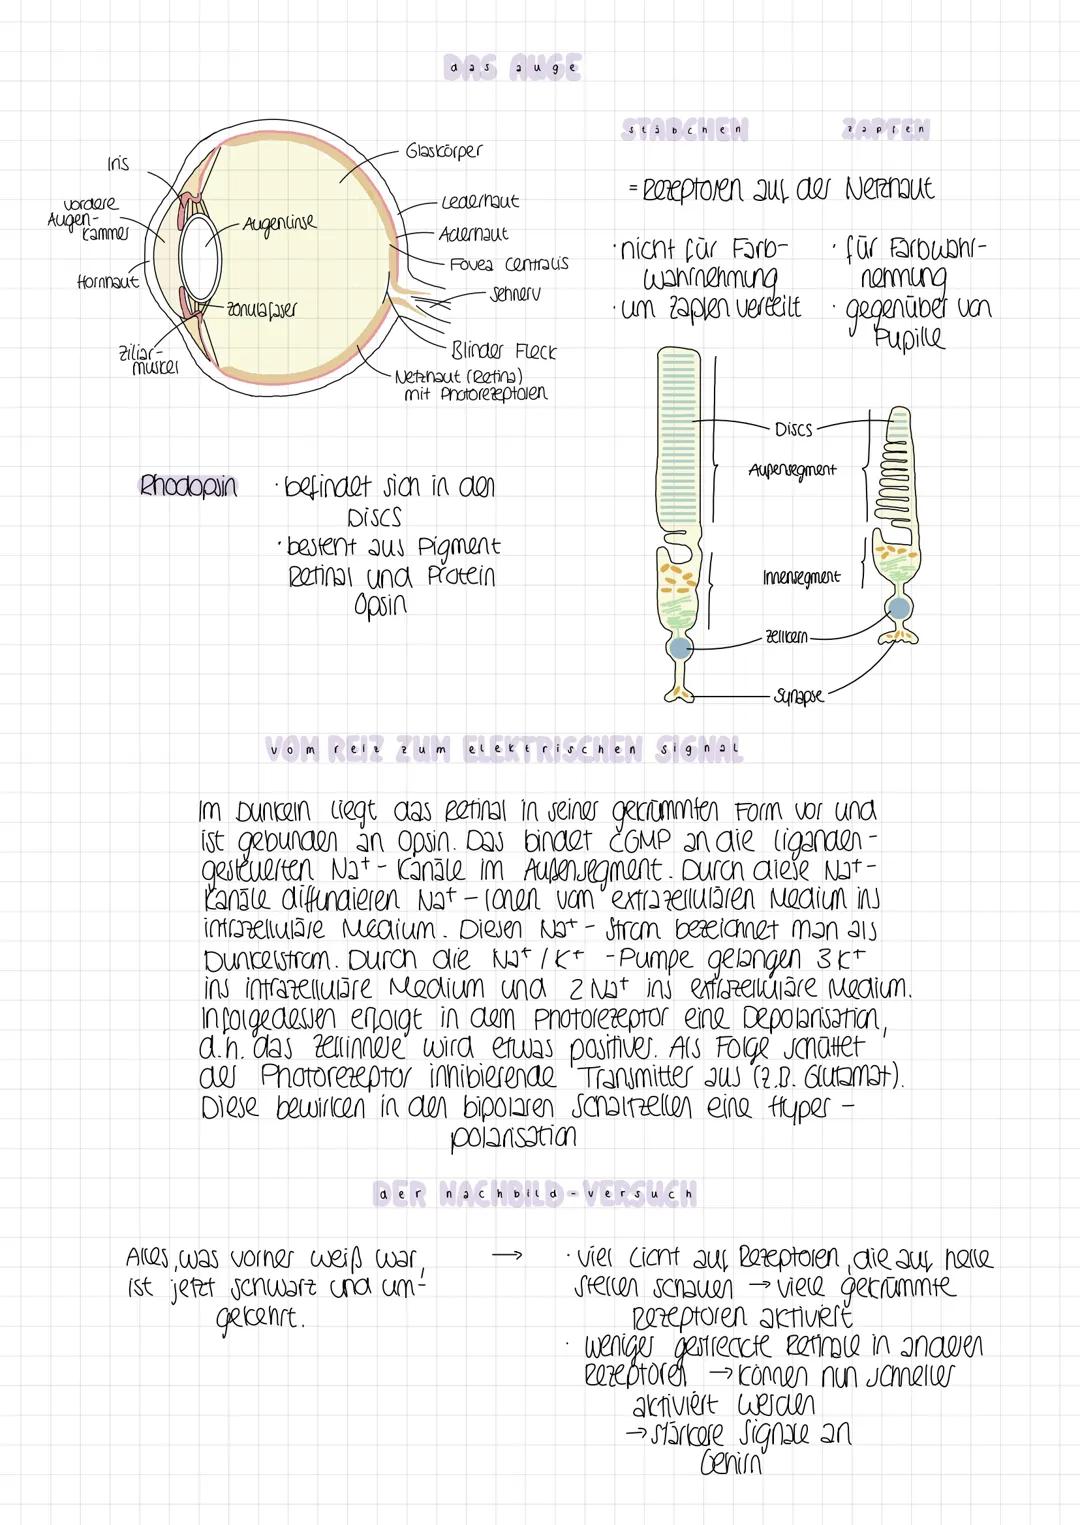 das auge
Iris
vordere
Augen-
kammer
Hornhaut
Ziliar-
muskel
Augenlinse
Zonulafaser
Glaskörper
Lederhaut
Aderhaut
Fovea Centralis
Sehnerv
Blinder Fleck
Netzhaut (Retina)
mit Photorezeptoren
stäbchen
zapfen
= Rezeptoren auf der Netzhaut
· nicht für Farb-
wahrnehmung
· um Zapfen verteilt
· für Farbwahr-
nehmung
· gegenüber von
Pupille
Discs
Außensegment
Innensegment
Zellkern
Synapse
Rhodopsin
· befindet sich in den
Discs
· besteht aus Pigment
Retinal und Protein
Opsin
vom reiz zum elektrischen signal
Im Dunkeln liegt das Retinal in seiner gekrümmten Form vor und
ist gebunden an Opsin. Das bindet cGMP an die liganden-
gesteuerten Na+ - Kanäle im Außensegment. Durch diese Na+-
Kanäle diffundieren Na+ - Ionen vom extrazellulären Medium ins
intrazelluläre Medium. Diesen Na+ - Strom bezeichnet man als
Dunkelstrom. Durch die Na+/K+ -Pumpe gelangen 3 K+
ins intrazelluläre Medium und 2 Na+ ins extrazelluläre Medium.
Infolgedessen erfolgt in dem Photorezeptor eine Depolarisation,
d.h. das Zellinnere wird etwas positiver. Als Folge schüttet
der Photorezeptor inhibierende Transmitter aus (z.B. Glutamat).
Diese bewirken in den bipolaren Schaltzellen eine Hyper-
polarisation
der nachbild-versuch
Alles, was vorher weiß war,
ist jetzt schwarz und um-
gekehrt.
→
· viel Licht auf Rezeptoren, die auf helle
Stellen schauen → viele gekrümmte
Rezeptoren aktiviert
· weniger gestreckte Retinale in anderen
Rezeptoren → können nun schneller
aktiviert werden
→ stärkere Signale an
Gehirn